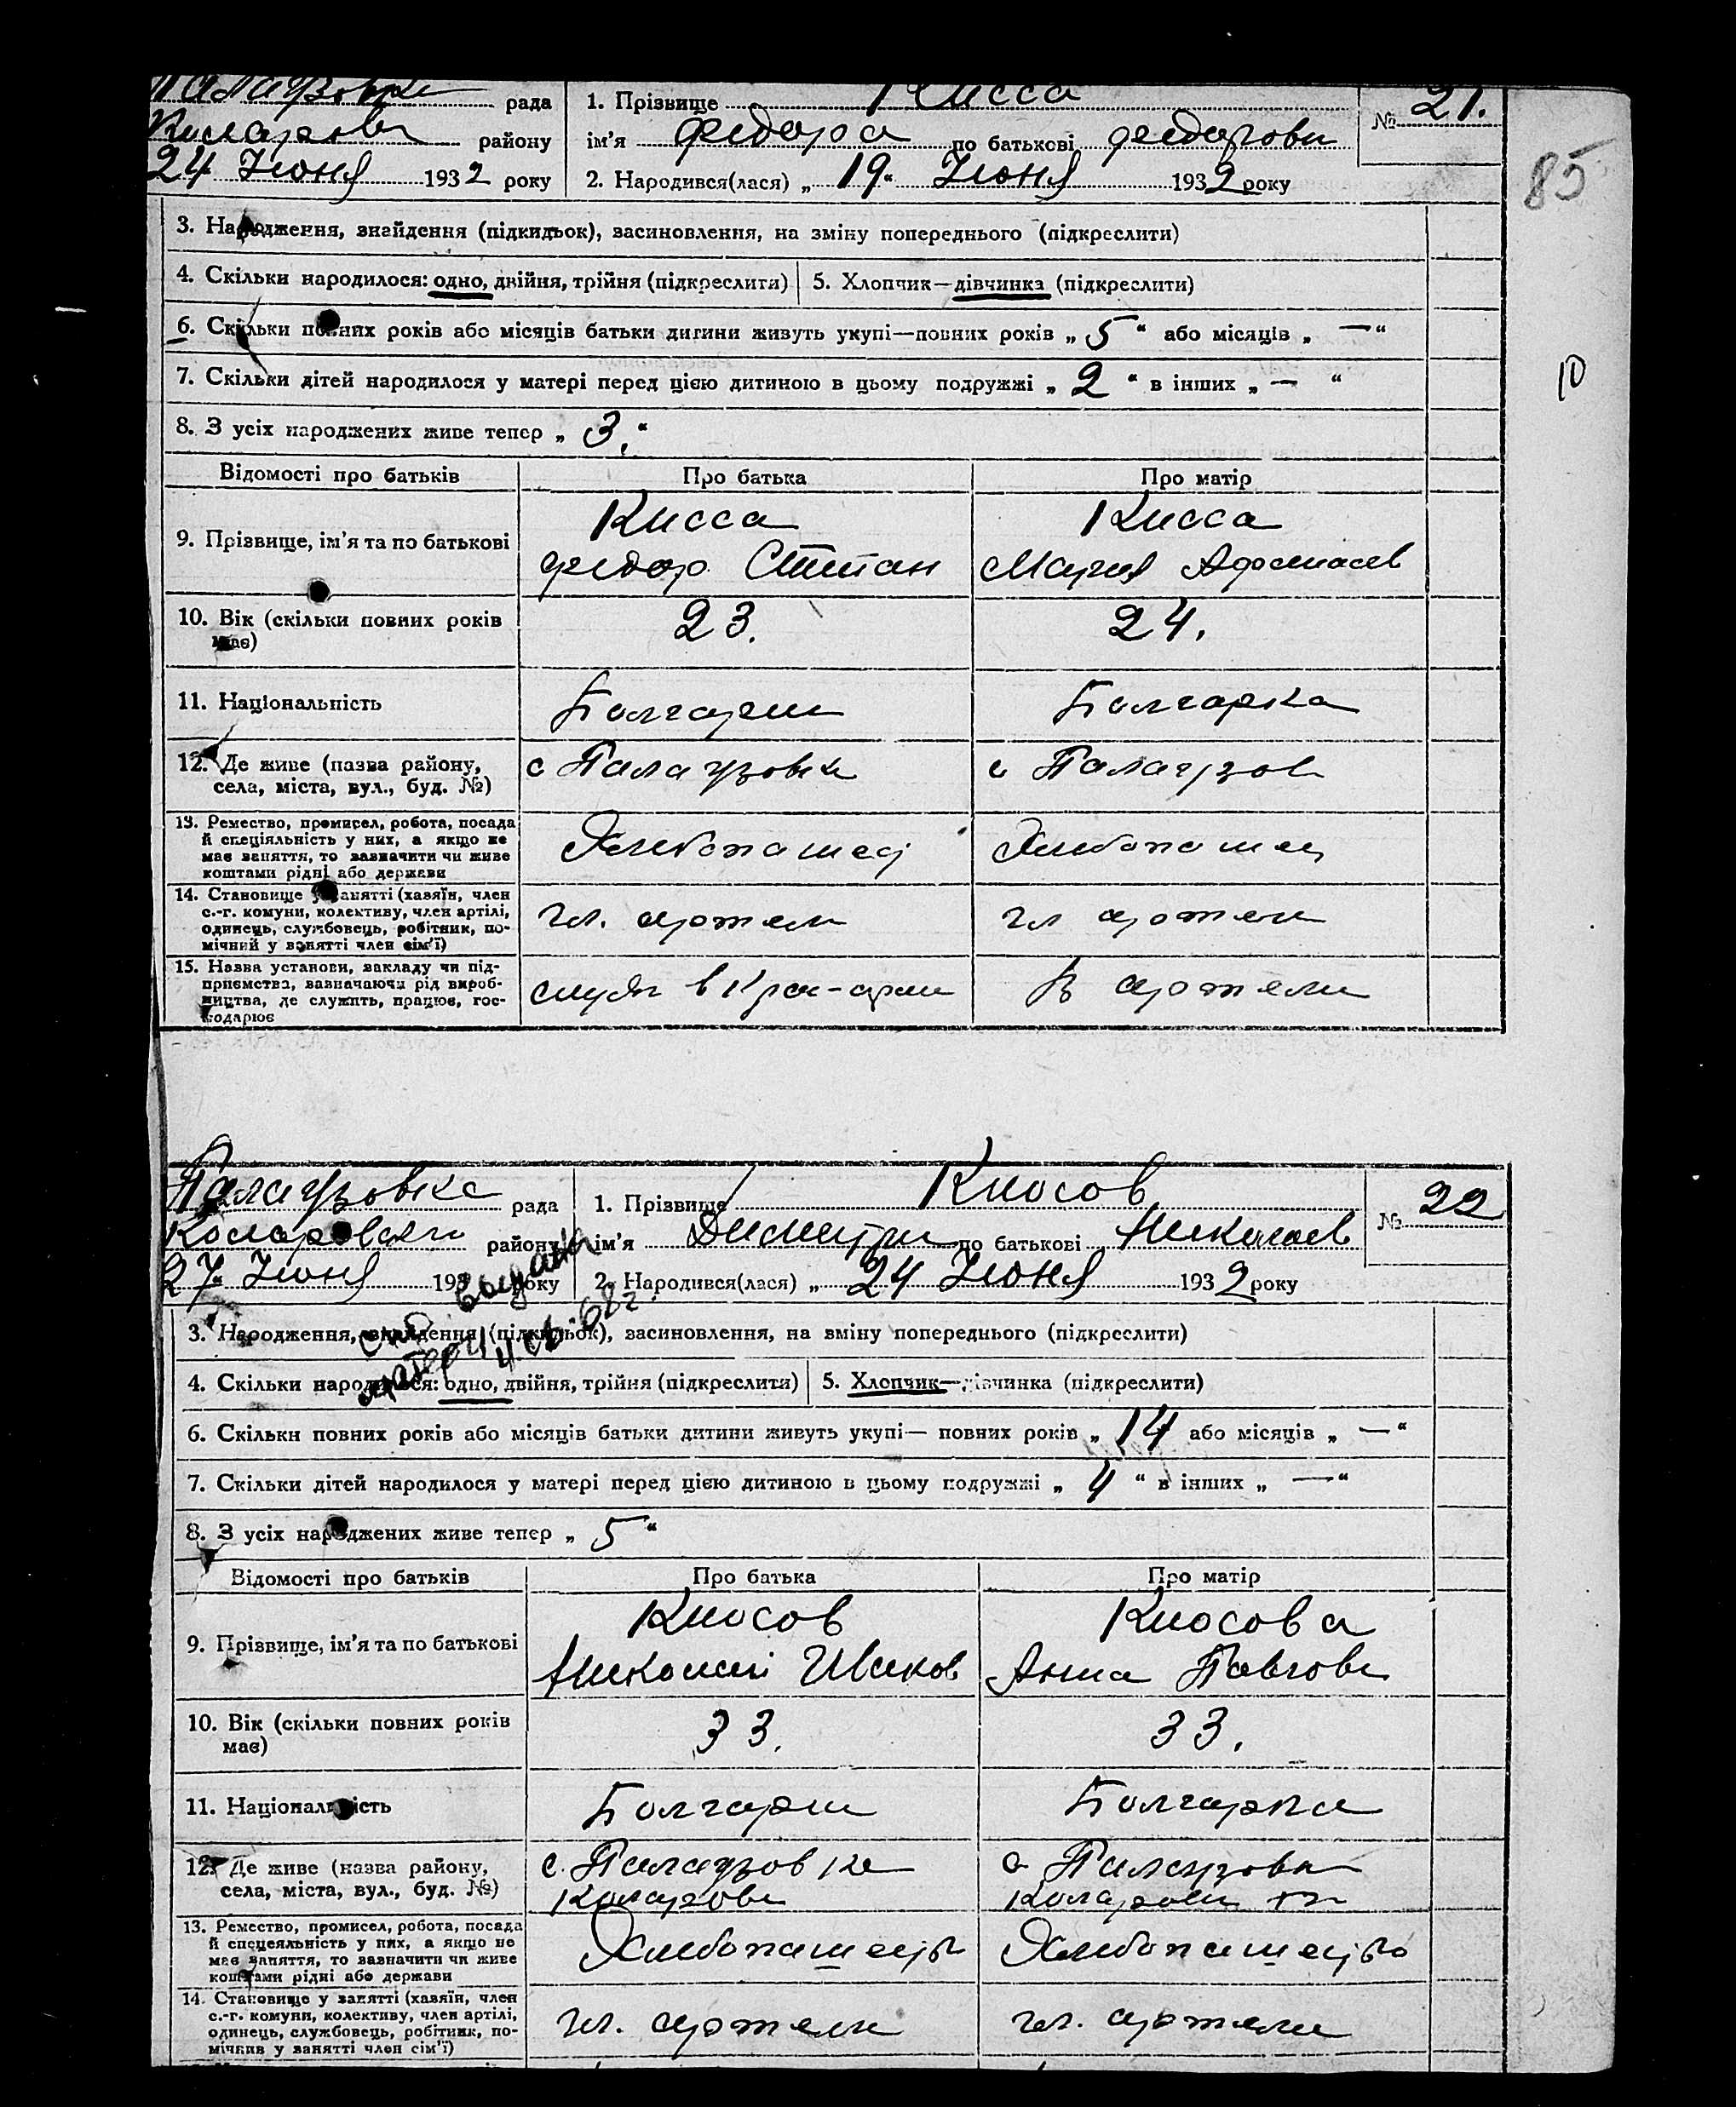 Палаузовка рада 1. Прізвище Кисса № 21.
Коларовск району ім'я Федора по батькові Федорови
24 Июня 1932 року 2. Народився(лася) „ 19 " Июня 1932 року
85
3. Народження, знайдення (підкидьок), засиновлення, на зміну попереднього (підкреслити)
4. Скільки народилося: одно, двійня, трійня (підкреслити) 5. Хлопчик—дівчинка (підкреслити)
6. Скільки повних років або місяців батьки дитини живуть укупі—повних років „ 5 " або місяців „ — "
10
7. Скільки дітей народилося у матері перед цією дитиною в цьому подружжі „ 2 " в інших „ — "
8. З усіх народжених живе тепер „ 3. "
Відомості про батьків Про батька Про матір
9. Прізвище, ім'я та по батькові Кисса Кисса
Федор Степан Мария Афанасев
10. Вік (скільки повних років має) 23. 24.
11. Національність Болгарин Болгарка
12. Де живе (назва району, с Палаузовка с Палаузов
села, міста, вул., буд. №)
13. Ремество, промисел, робота, посада
й спеціяльність у них, а якщо не Хлебопашец Хлебопашец
має заняття, то зазначити чи живе
коштами рідні або держави
14. Становище у занятті (хазяїн, член
с.-г. комуни, колективу, член артілі, чл. артели чл артели
одинець, службовець, робітник, по-
мічний у занятті член сім'ї)
15. Назва установи, закладу чи під-
приємства, зазначаючи рід вироб- служ в Крас-арми В артели
ництва, де служить, працює, гос-
подарює
Палаузовка рада 1. Прізвище Кюсов № 22
Коларовски району ім'я Димитри по батькові Николаев
27 Июня 193 року 2. Народився(лася) „ 24 Июня 1932 року
выдан
3. Народження, знайдення (підкидьок), засиновлення, на зміну попереднього (підкреслити)
4. Скільки народилося: одно, двійня, трійня (підкреслити) 5. Хлопчик—дівчинка (підкреслити)
6. Скільки повних років або місяців батьки дитини живуть укупі— повних років „ 14 або місяців „ — "
7. Скільки дітей народилося у матері перед цією дитиною в цьому подружжі „ 4 " в інших „ — "
8. З усіх народжених живе тепер „ 5 "
Відомості про батьків Про батька Про матір
9. Прізвище, ім'я та по батькові Кюсов Кюсова
Николай Иванов Анна Павлови
10. Вік (скільки повних років має) 33. 33.
11. Національність Болгарин Болгарка
12. Де живе (назва району, с. Палаузовка с Палаузовка
села, міста, вул., буд. №) Коларовк
13. Ремество, промисел, робота, посада
й спецеяльність у них, а якщо не Хлебопашецтв Хлебопашецтво
має заняття, то зазначити чи живе
коштами рідні або держави
14. Становище у занятті (хазяїн, член
с.-г. комуни, колективу, член артілі, чл. артели чл. артели
одинець, службовець, робітник, по-
мічник у занятті член сім'ї)